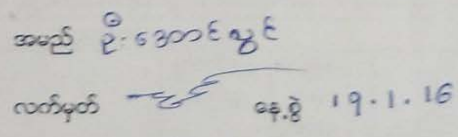 အမည် ဦးအောင်လွင်
လက်မှတ် နေ့စွဲ 19.1.16